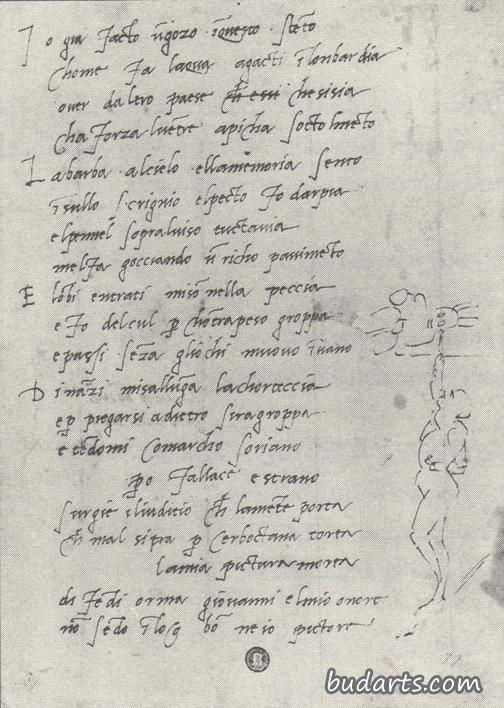 I o gia facto ũgozo ĩquesto stẽto
chome fa laqua agacti ĩ lonbardia
over daltro paese ch̃ essi chesisia
cha forza luẽtre apicha socto lmeto
L a barba alcielo ellamemoria sento
ĩsullo scrignio elpecto fo darpia
elpennel sopraluiso tuctavia
melfa gocciando ũ richo pavimẽto
E lõbi entrati miso nella peccia
e fo delcul p chõtrapeso groppa
e passi sẽza gliochi muovo ĩvano
D inãzi misallũga lachorteccia
e p piegarsi adietro siragroppa
e tẽdomi comarcho soriano
po fallace e strano
surgie iliuditio ch̃ lamẽte porta
ch̃ mal sipra p cerboctana torta
lamia pictura morta
di fẽdi orma giovanni elmio onore
nõ sẽdo ĩ loco bõ ne io pictore
budarts.com